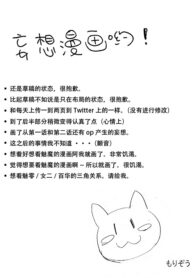 妄想漫画哟！
• 还是草稿的状态，很抱歉。
• 比起草稿不如说是只在布局的状态，很抱歉。
• 和每天上传一到两页到 Twitter 上的一样。（没有进行修改）
• 到了后半部分稍微变得认真了点（心情上）
• 画了从第一话和第二话还有 op 产生的妄想。
• 这之后的事情我不知道・・・（颤音）
• 想看好想看魅魔的漫画阿我就画了、非常饥渴。
• 觉得想要看魅魔的漫画啊 – 所以就画了，很饥渴。
• 想看魅零 / 女二 / 百华的三角关系，请给我。
もりぞう